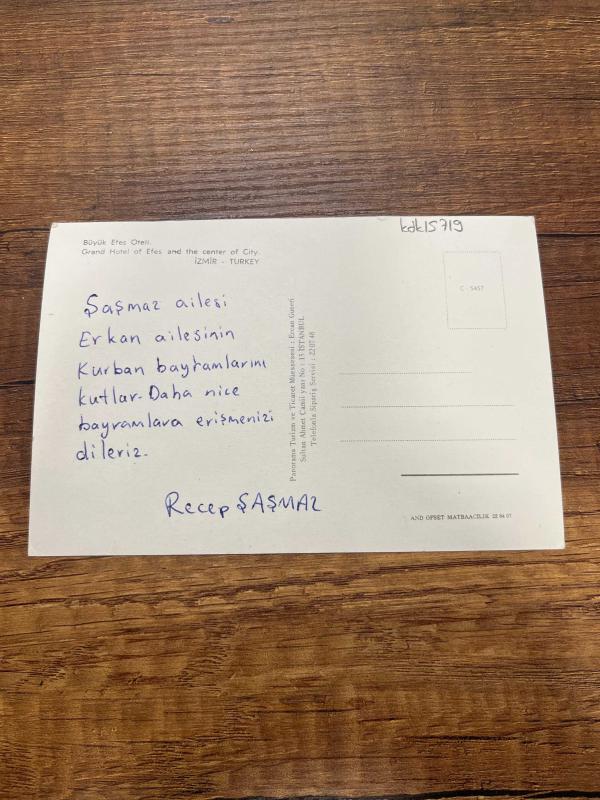 kdk15719
Büyük Efes Oteli.
Grand Hotel of Efes and the center of City.
İZMİR - TURKEY
C - 5457
Şaşmaz ailesi
Erkan ailesinin
Kurban bayramlarını
kutlar. Daha nice
bayramlara erişmenizi
dileriz.
Recep ŞAŞMAZ
Panorama Turizm ve Ticaret Müessesesi : Ercan Güneri
Sultan Ahmet Camii yanı No : 15 İSTANBUL
Telefonla Sipariş Servisi : 22 07 48
AND OFSET MATBAACILIK 22 84 07